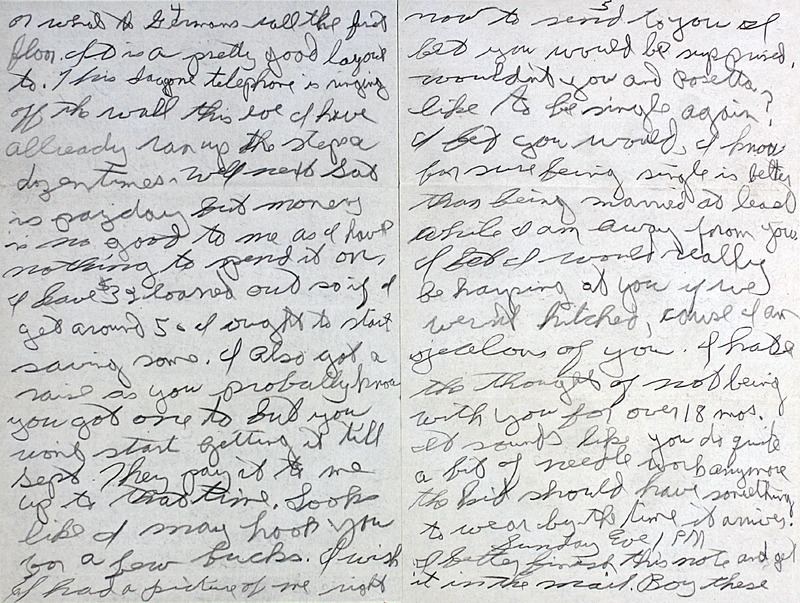 or what the Germans call the first
floor. It is a pretty good layout
to. This dagone telephone is ringing
off the wall this eve I have
allready ran up the steps a
dozen times. Well next Sat
is payday but money
is no good to me as I have
nothing to spend it on,
I have $32 loaned out so if I
get around 50 I ought to start
saving some. I also got a
raise as you probally know
you got one to but you
wont start getting it till
Sept. They pay it to me
up to that time. Looks
like I may hook you
for a few bucks. I wish
I had a picture of me right
now to send to you I
bet you would be supprised,
wouldnt you and Rosetta
like to be single again?
I bet you would, I know
for sure being single is better
than being married at least
while I am away from you.
I bet I would really
be harping at you if we
wer'nt hitched, cause I am
jealous of you. I hate
the thought of not being
with you for over 18 mos.
It sounds like you do quite
a bit of needle work anymore
the kid should have something
to wear by the time it arrives.
Sunday Eve 1 PM
I better finish this note and get
it in the mail. Boy these